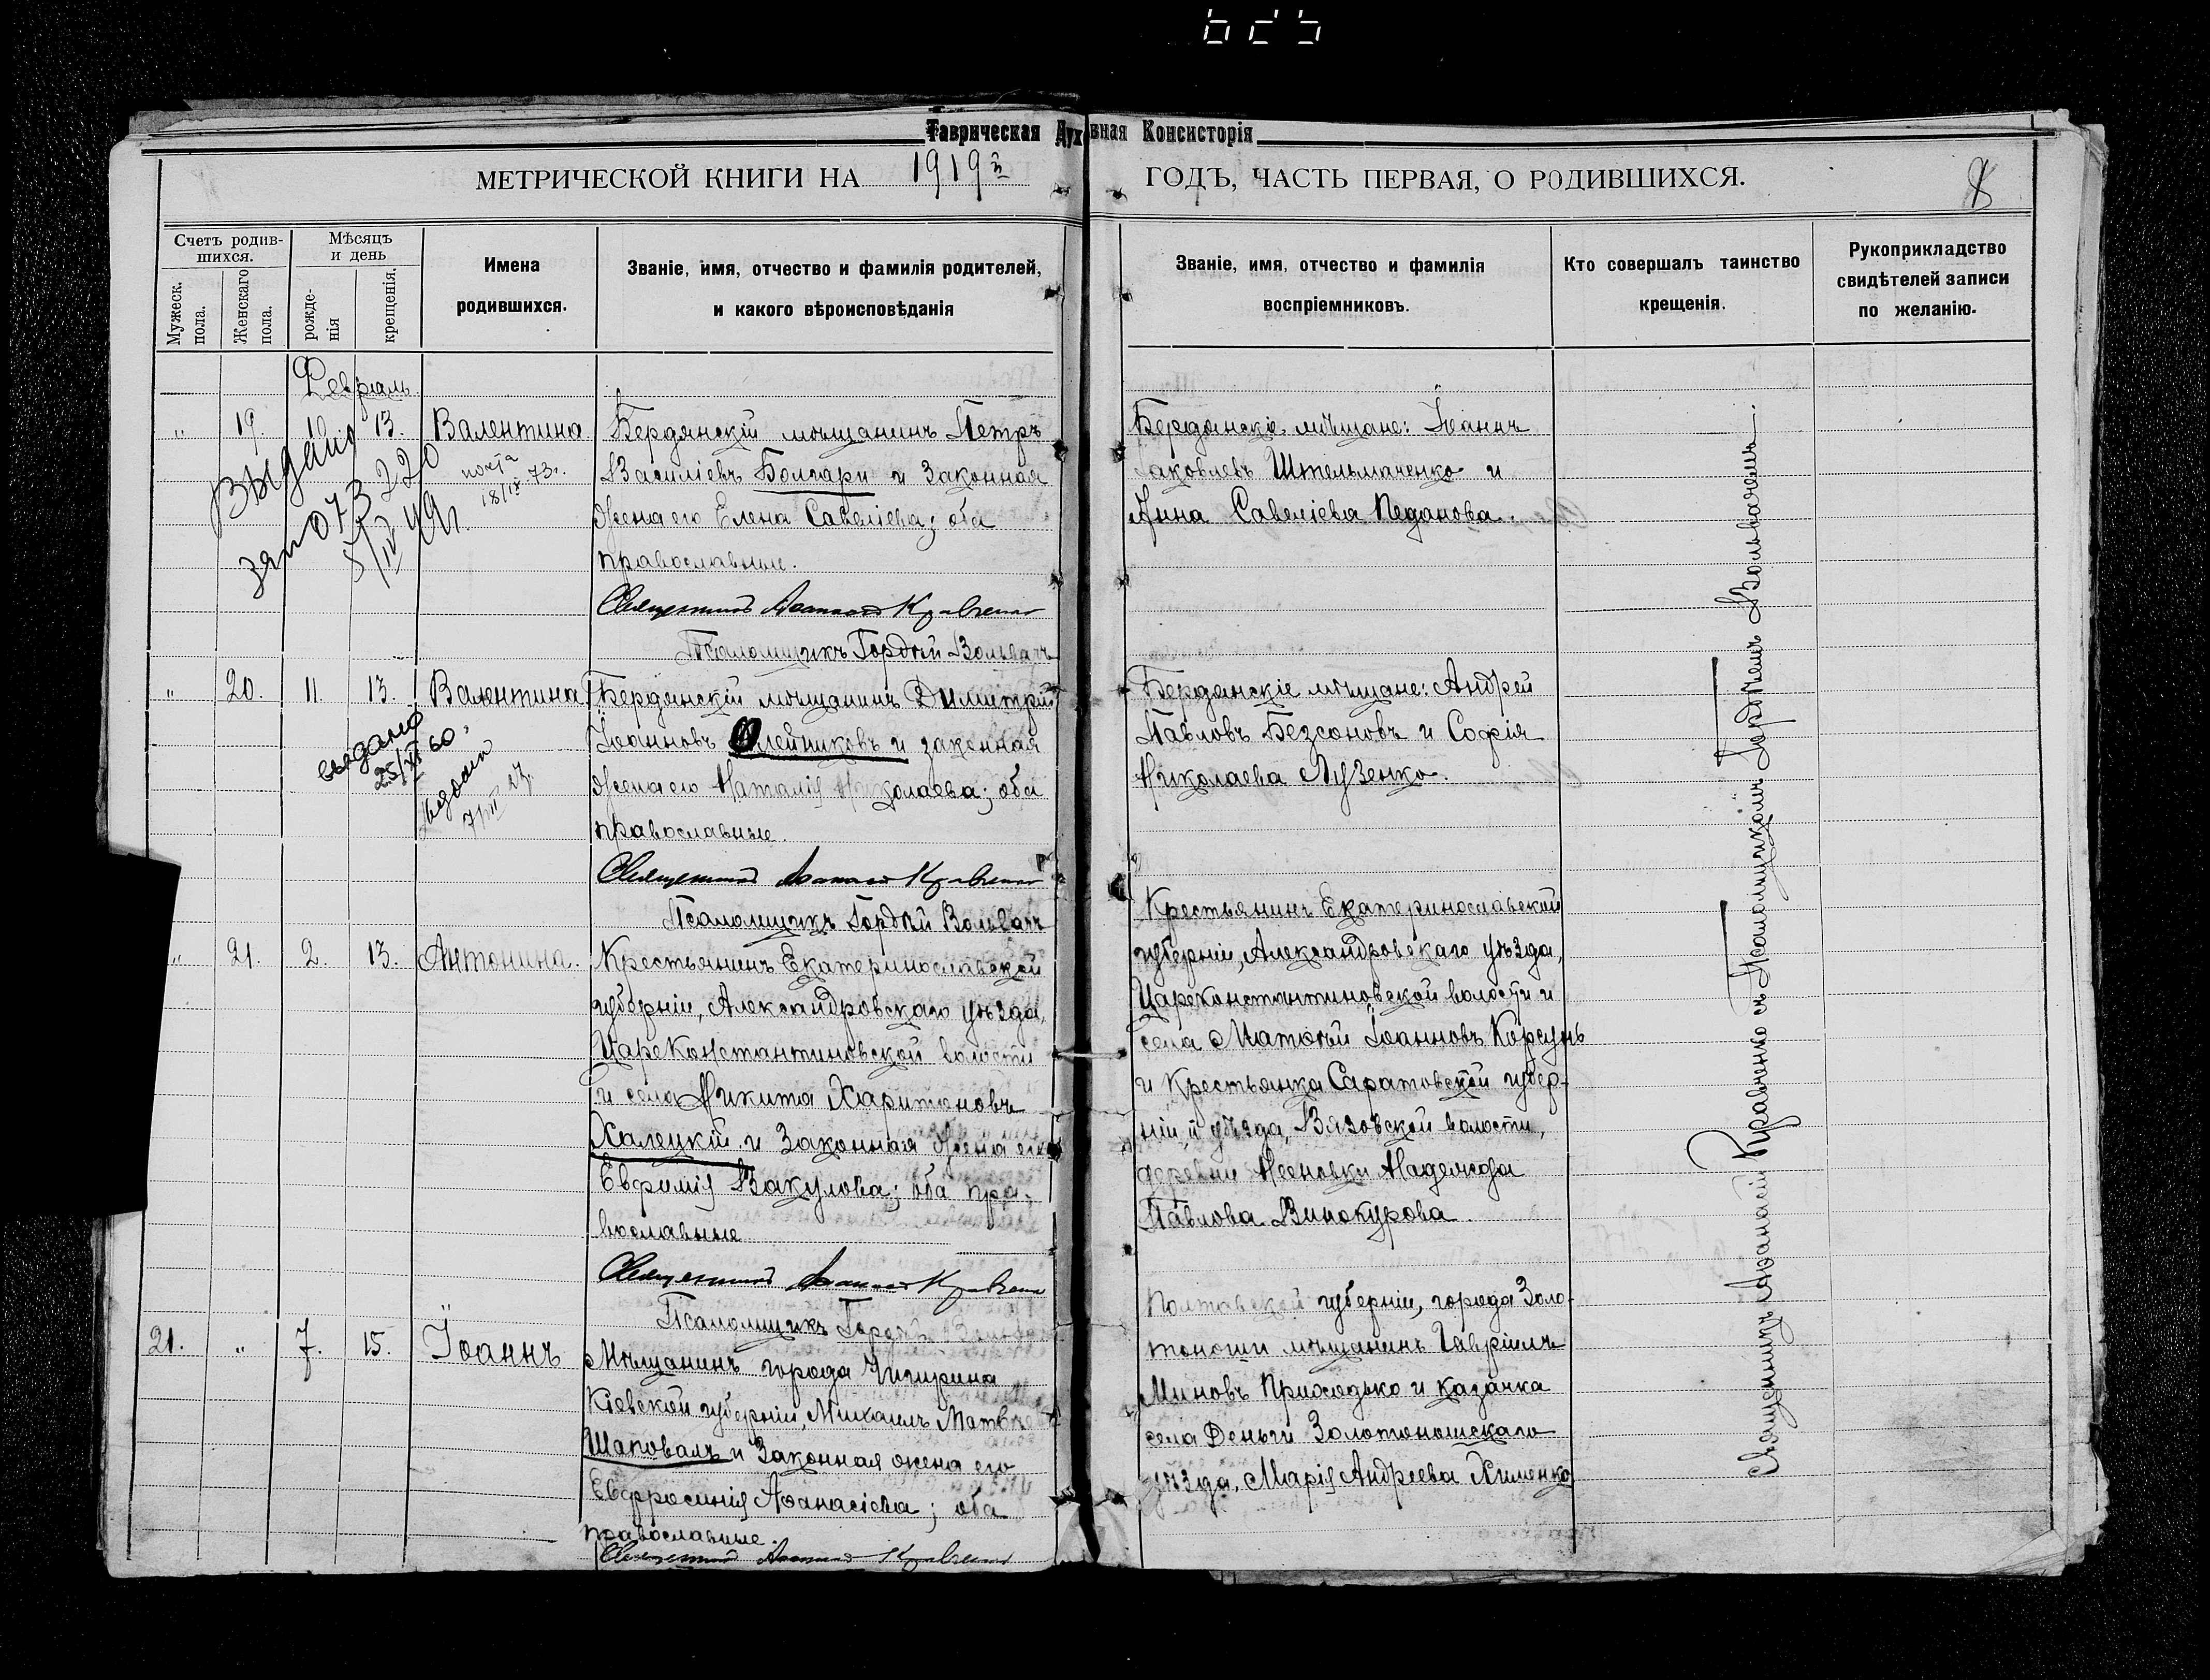 Таврическая Духовная Консисторія
МЕТРИЧЕСКОЙ КНИГИ НА 1919й ГОДЪ, ЧАСТЬ ПЕРВАЯ, О РОДИВШИХСЯ.
8
Счетъ родив-
шихся.
Мужеск.
пола.
Женскаго
пола.
Мѣсяцъ
и день
рожде-
нія
крещенія.
Имена
родившихся.
Званіе, имя, отчество и фамилія родителей,
и какого вѣроисповѣданія
Званіе, имя, отчество и фамилія
воспріемниковъ.
Кто совершалъ таинство
крещенія.
Рукоприкладство
свидѣтелей записи
по желанію.
Февраль
„ 19. 10. 13. Валентина
Бердянскій мѣщанинъ Петръ
Василіевъ Болгари и законная
жена его Елена Савеліева; оба
православные.
Священникъ Аѳанасій Кравченко
Псаломщикъ Гордѣй Вольвачъ
Бердянскіе мѣщане: Іоаннъ
Іаковлевъ Штельмаченко и
Анна Савеліева Педанова.
Выдано
220
5/IV 49г.
18/IX-73г.
„ 20. 11. 13. Валентина
Бердянскій мѣщанинъ Димитрій
Іоанновъ Олейниковъ и законная
жена его Наталія Николаева; оба
православные.
Священникъ Аѳанасій Кравченко
Псаломщикъ Гордѣй Вольвачъ
Бердянскіе мѣщане: Андрей
Павловъ Безсоновъ и Софія
Николаева Лузенко.
выдано
60.
„ 21. 2. 13. Антонина.
Крестьянинъ Екатеринославской
губерніи, Александровскаго уѣзда,
Цареконстантиновской волости
и села Никита Харитоновъ
Халецкій и законная жена его
Евфимія Вакулова; оба пра-
вославные
Священникъ Аѳанасій Кравченко
Псаломщикъ Гордѣй Вольвачъ
Крестьянинъ Екатеринославской
губерніи, Александровскаго уѣзда,
Цареконстантиновской волости и
села Матѳей Іоанновъ Корсунь
и Крестьянка Саратовской губер-
ніи и уѣзда, Вязовской волости,
деревни Надежда
Павлова Винокурова.
21. „ 7. 15. Іоаннъ
Мѣщанинъ города Чигирина
Кіевской губерніи, Михаилъ Матвѣевъ
Шаповалъ и законная жена его
Евфросинія Аѳанасіева; оба
православные.
Священникъ Аѳанасій Кравченко
Полтавской губерніи, города Золо-
тоноши мѣщанинъ Гавріилъ
Миновъ Приходько и казачка
села Деньги Золотоношскаго
уѣзда, Марія Андреева Хименко
Священникъ Аѳанасій Кравченко съ Псаломщикомъ Гордѣемъ Вольвачемъ.